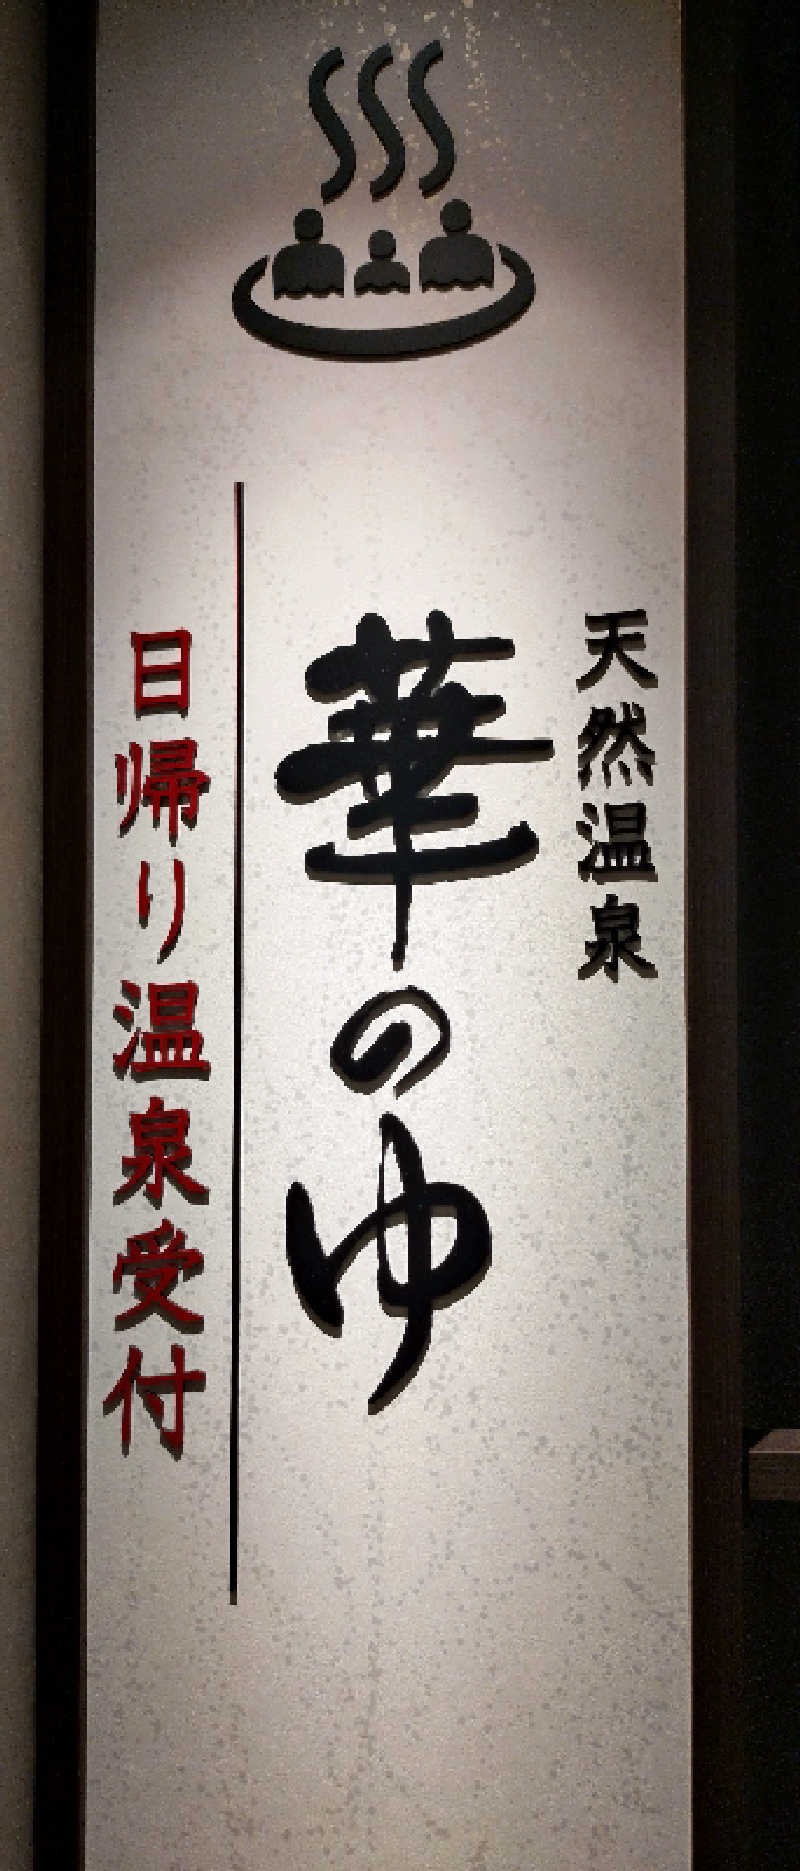 天然温泉
華のゆ
日帰り温泉受付